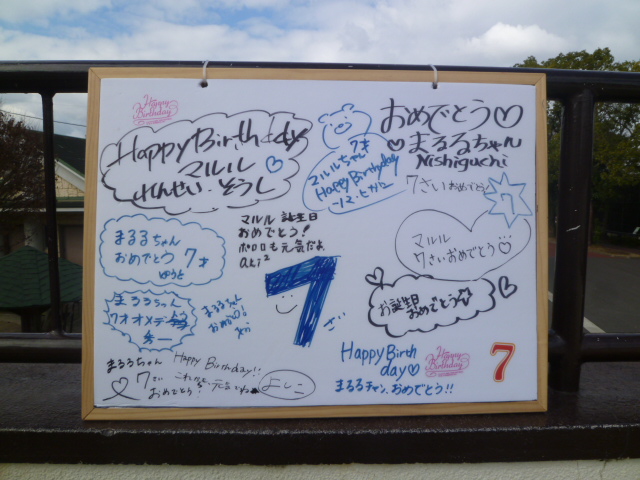 Happy Birthday
Happy Birthday
マルル
れんせい.そうし
マルルちゃん 7才
Happy Birthday
おめでとう♡
まるるちゃん
Nishiguchi
7さいおめでとう
7
まるるちゃん
おめでとう 7才
ゆうと
マルル 誕生日
おめでとう!
ポロロも元気だよ
aki²
マルル
7さいおめでとう
7
さい
まるるちゃん
7オオメデ
まるるちゃん
おめでとう
お誕生日
おめでとう☆
まるるちゃん
7さい
おめでとう!
Happy Birthday!!
これからも元気でね
よしこ
Happy Birth
day♡
まるるチャン.おめでとう!!
Happy
Birthday
7